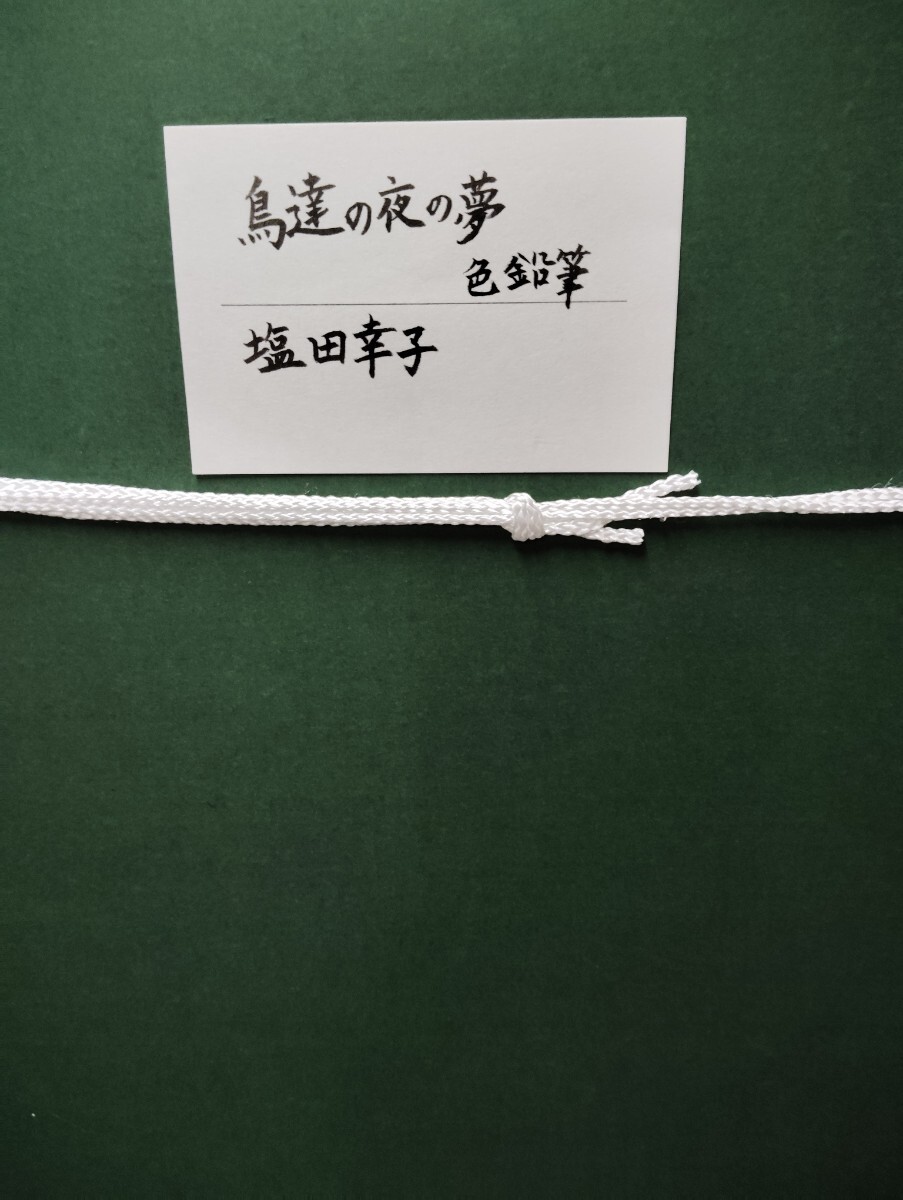 鳥達の夜の夢
色鉛筆
塩田幸子